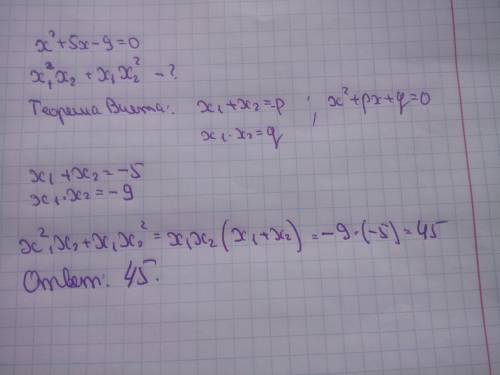 x²+5x-9=0
x₁²x₂ + x₁x₂² - ?
Теорема Виета: x₁+x₂=-p ; x²+px+q=0
x₁·x₂=q
x₁+x₂=-5
x₁·x₂=-9
x²₁x₂+x₁x₂² = x₁x₂(x₁+x₂)=-9·(-5)=45
Ответ: 45.